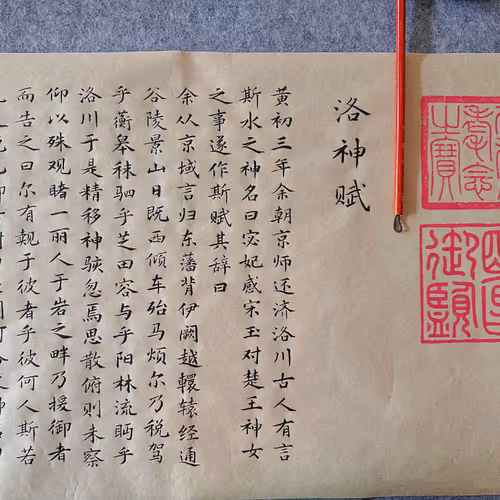 耄念
之寶
御覽
洛神赋
黄初三年余朝京师还济洛川古人有言
斯水之神名曰宓妃感宋玉对楚王神女
之事遂作斯赋其辞曰
余从京域言归东藩背伊阙越轘辕经通
谷陵景山日既西倾车殆马烦尔乃税驾
乎蘅皋秣驷乎芝田容与乎阳林流眄乎
洛川于是精移神骇忽焉思散俯则未察
仰以殊观睹一丽人于岩之畔乃援御者
而告之曰尔有觌于彼者乎彼何人斯若